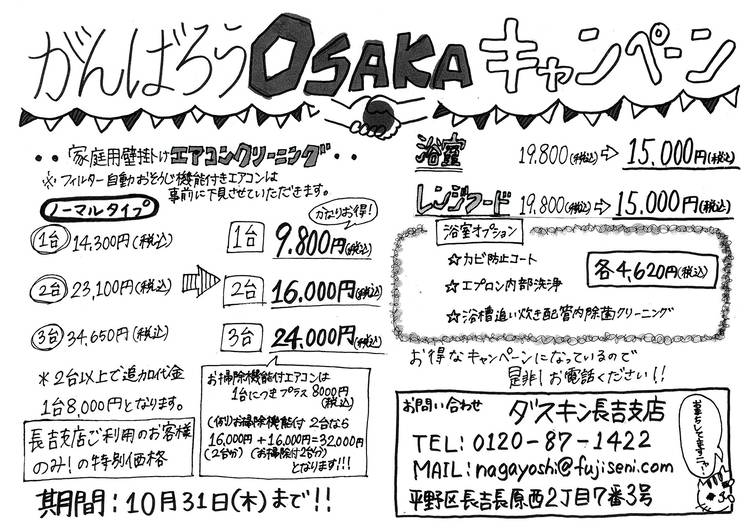 がんばろうOSAKAキャンペーン
・・家庭用壁掛けエアコンクリーニング・・
※フィルター自動おそうじ機能付きエアコンは
事前に下見させていただきます。
ノーマルタイプ
かなりお得!
1台 14,300円(税込) 1台 9,800円(税込)
2台 23,100円(税込) ⇨ 2台 16,000円(税込)
3台 34,650円(税込) 3台 24,000円(税込)
*2台以上で追加代金
1台8,000円となります。
長吉支店ご利用のお客様
のみ!の特別価格
お掃除機能付エアコンは
1台につきプラス8000円
(税込)
(例)お掃除機能付2台なら
16,000円+16,000円=32,000円
(2台分) (お掃除付2台分)
となります!!!
期間:10月31日(木)まで!!
浴室 19,800(税込)⇨15,000円(税込)
レンジフード 19,800(税込)⇨15,000円(税込)
浴室オプション
☆カビ防止コート
☆エプロン内部洗浄
☆浴槽追い炊き配管内除菌クリーニング
各4,620円(税込)
お得なキャンペーンになっているので
是非!お電話ください!!
お問い合わせ ダスキン長吉支店
TEL:0120-87-1422
MAIL:nagayoshi@fujiseni.com
平野区長吉長原西2丁目7番3号
お待ちしてますニャ〜!